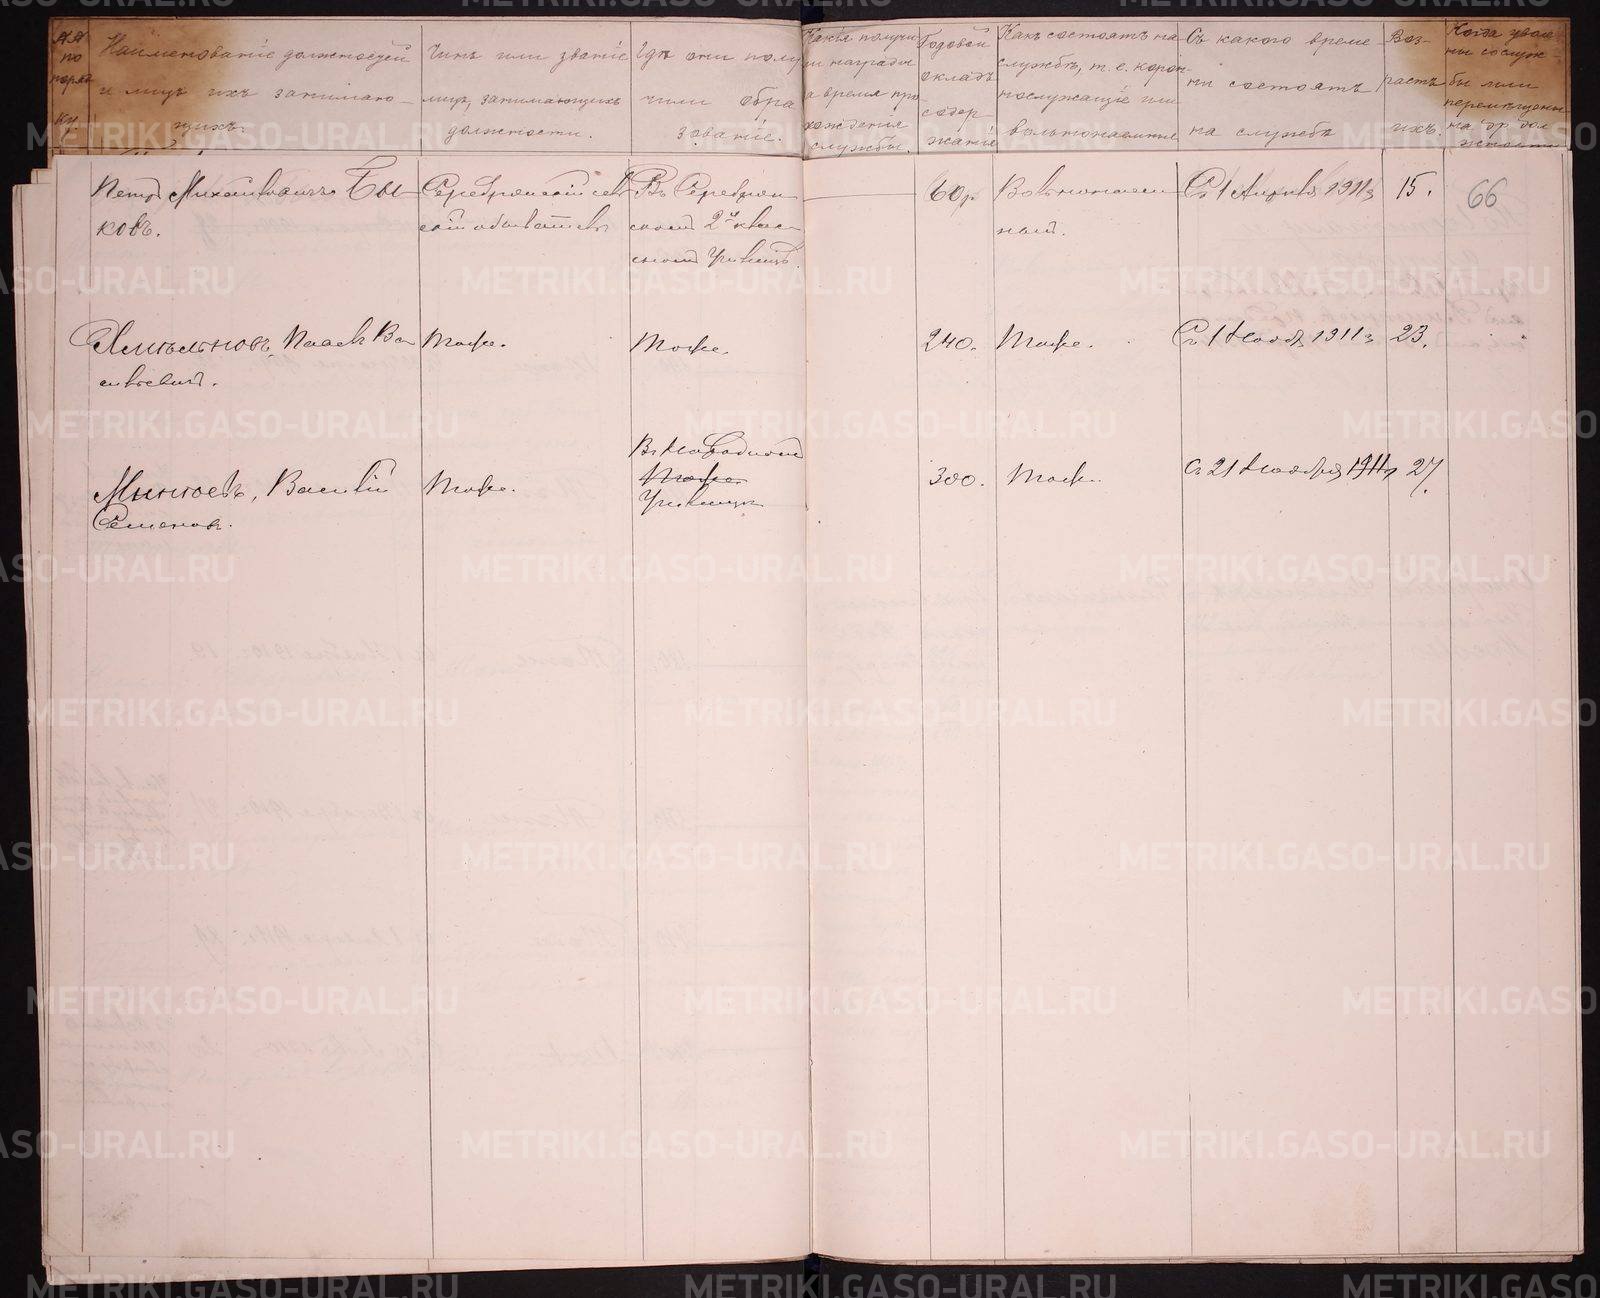 №№ по порядку
Наименованіе должностей
и лицъ ихъ занимаю-
щихъ.
Чинъ или званіе
лицъ, занимающихъ
должности.
Гдѣ они полу
чили обра
зованіе.
Какія получи
ли награды
за время про
хожденія
службы.
Годовой
окладъ
содер
жанія
Какъ состоятъ на
службѣ, т. е. корон-
нослужащіе или
вольнонаемные
Съ какого време
ни состоятъ
на службѣ
Воз-
растъ
ихъ.
Когда уволе
ны со служ
бы или
перемѣщены
на др. дол
жности
66
Петръ Михайловичъ Бы-
ковъ.
Серебрянскій сель
скій обыватель
Въ Серебрян
скомъ 2х клас
сномъ Училищѣ.
60 р.
Вольнонаем
ный.
Съ 1 Апрѣля 1911 г.
15.
Хмѣльновъ, Павелъ Ва
сильевичъ.
Тоже.
Тоже.
240.
Тоже.
Съ 1 Ноября 1911 г.
23.
Василій
Семеновъ.
Тоже.
Въ Народномъ
Тоже.
Училищѣ
300.
Тоже.
Съ 21 Ноября 1911 г.
27.
METRIKI.GASO-URAL.RU